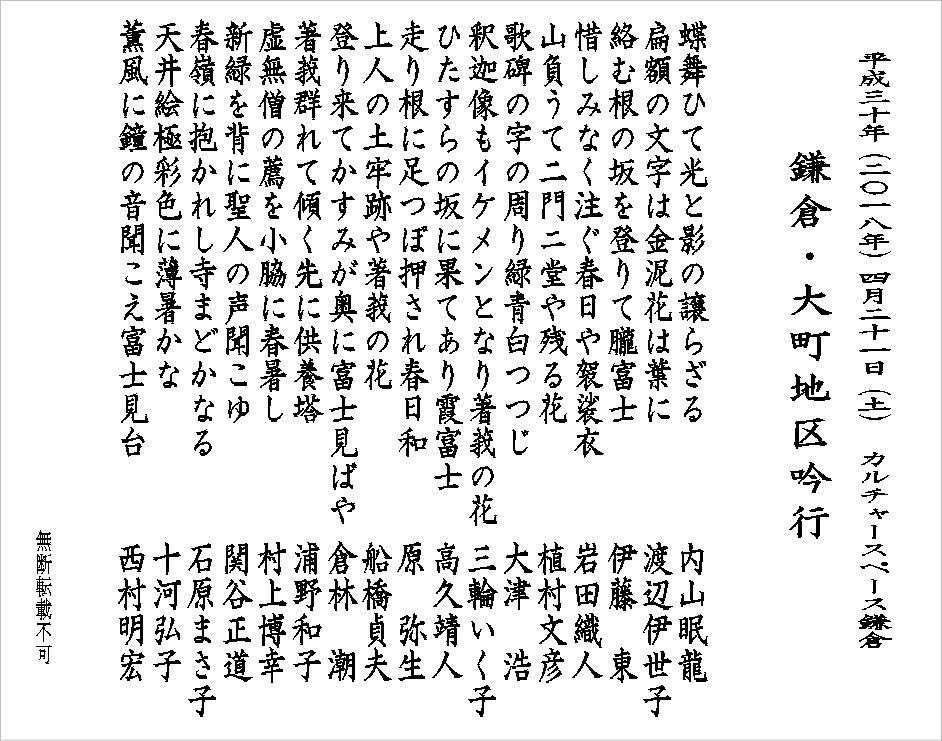 平成三十年（二〇一八年）四月二十一日（土）　カルチャースペース鎌倉
鎌倉・大町地区吟行
蝶舞ひて光と影の譲らざる　内山眠龍
扁額の文字は金泥花は葉に　渡辺伊世子
絡む根の坂を登りて朧富士　伊藤　東
惜しみなく注ぐ春日や袈裟衣　岩田織人
山負うて二門二堂や残る花　植村文彦
歌碑の字の周り緑青白つつじ　大津　浩
釈迦像もイケメンとなり著莪の花　三輪いく子
ひたすらの坂に果てあり霞富士　高久靖人
走り根に足つぼ押され春日和　原　弥生
上人の土牢跡や著莪の花　船橋貞夫
登り来てかすみが奥に富士見ばや　倉林　潮
著莪群れて傾く先に供養塔　浦野和子
虚無僧の薦を小脇に春暑し　村上博幸
新緑を背に聖人の声聞こゆ　関谷正道
春嶺に抱かれし寺まどかなる　石原まさ子
天井絵極彩色に薄暑かな　十河弘子
薫風に鐘の音聞こえ富士見台　西村明宏
無断転載不可